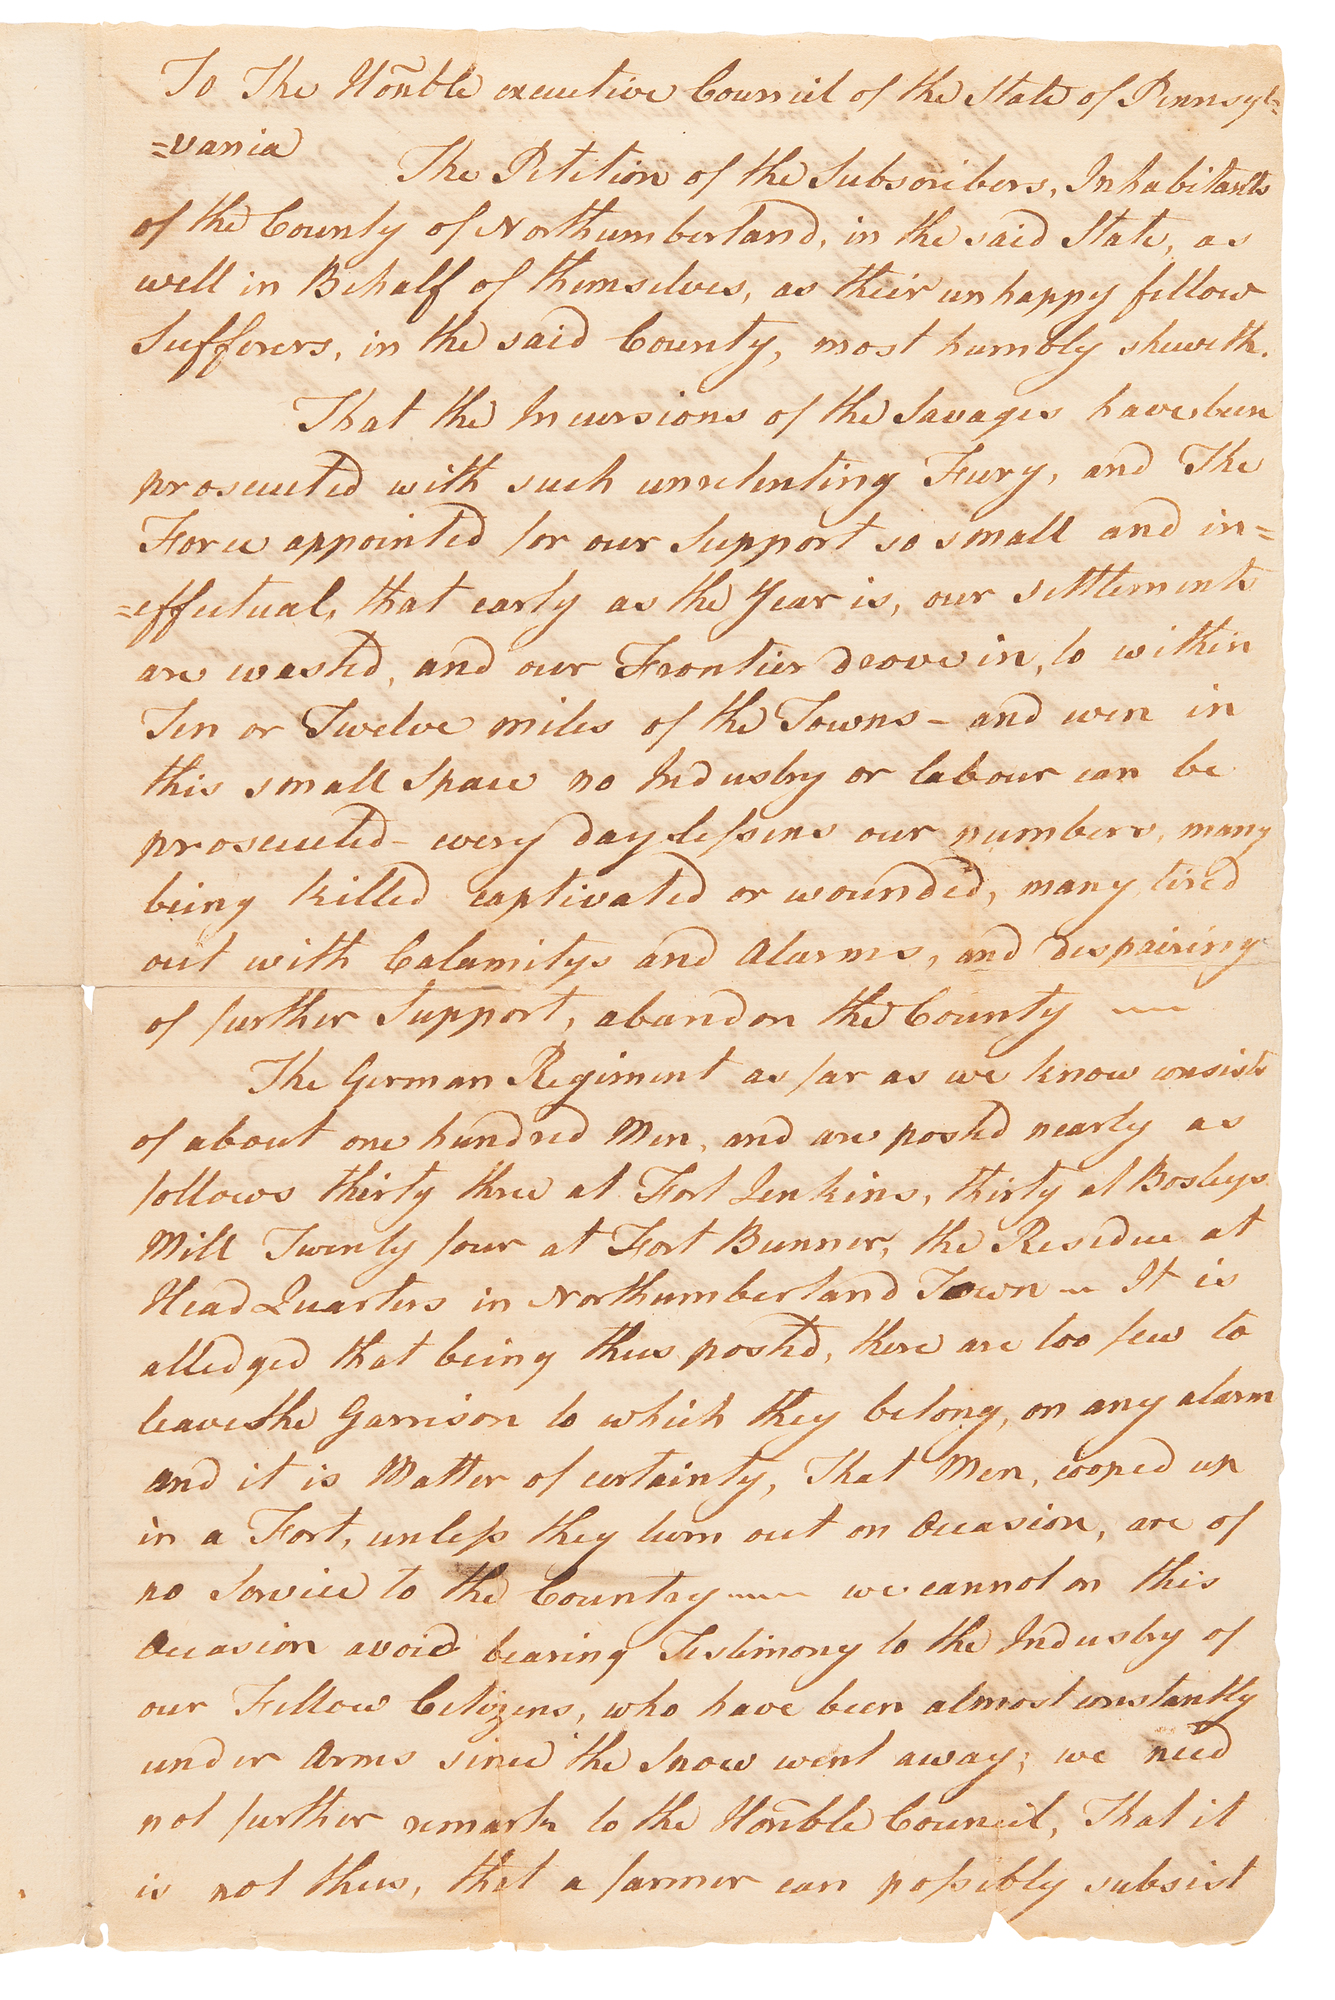 To The Hon̄ble executive Council of the State of Pennsyl=
=vania
The Petition of the Subscribers, Inhabitants
of the County of Northumberland, in the said State, as
well in Behalf of themselves, as their unhappy fellow
Sufferers, in the said County, most humbly sheweth.
That the Incursions of the Savages have been
prosecuted with such unrelenting Fury, and The
Force appointed for our Support so small and in=
=effectual, that early as the Year is, our settlements
are wasted, and our Frontier drove in, to within
Ten or Twelve miles of the Towns – and even in
this small Space no Industry or labour can be
prosecuted – every day lessens our numbers, many
being killed captivated or wounded, many tired
out with Calamitys and Alarms, and despairing
of further Support, abandon the County
The German Regiment as far as we know consists
of about one hundred Men, and are posted nearly as
follows thirty three at Fort Jenkins, thirty at Bosleys
Mill Twenty four at Fort Bunner, the Residue at
Head Quarters in Northumberland Town – It is
alledged that being thus posted, there are too few to
leave the Garrison to which they belong, on any alarm
and it is Matter of certainty, That Men, cooped up
in a Fort, unless they turn out on Occasion, are of
no Service to the Country — we cannot on this
Occasion avoid bearing Testimony to the Industry of
our Fellow Citizens, who have been almost constantly
under Arms since the Snow went away; we need
not further remark to the Hon̄ble Council, That it
is not thus, that a farmer can possibly subsist